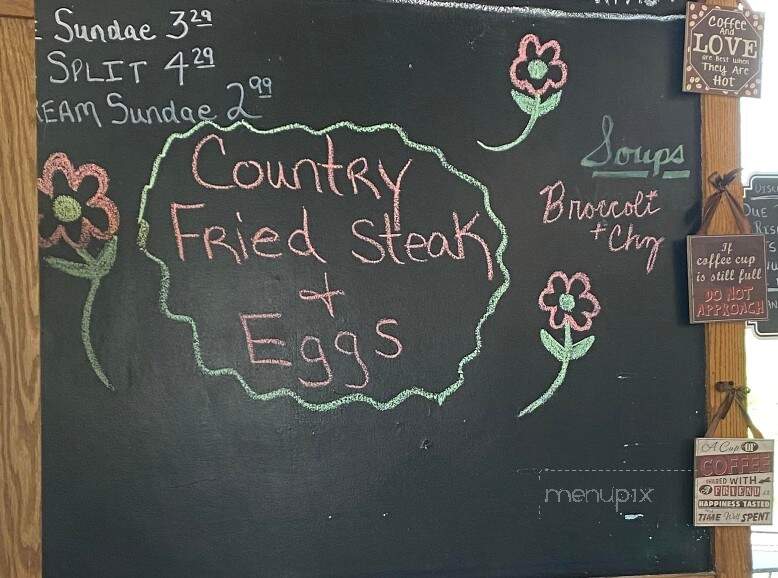 Sundae 3 29
SPLIT 4 29
EAM Sundae 2 99
Country
Fried Steak
+
Eggs
Soups
Broccoli
+ Chz
Coffee
And
LOVE
are Best when
They Are
Hot
If
coffee cup
is still full
DO NOT
APPROACH
A Cup of
COFFEE
SHARED WITH
A FRIEND is
HAPPINESS TASTED
TIME Well SPENT
menupix